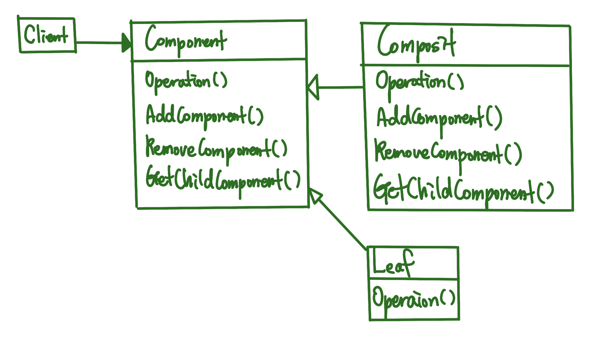 Client
Component
Operation()
AddComponent()
RemoveComponent()
GetChildComponent()
Composit
Operation()
AddComponent()
RemoveComponent()
GetChildComponent()
Leaf
Operaion()